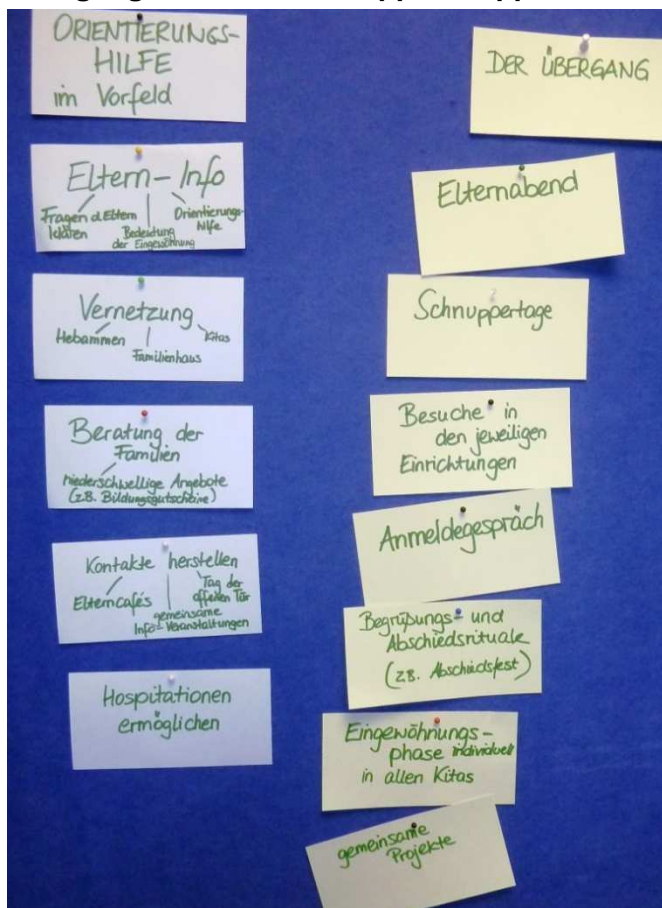 ORIENTIERUNGS-
HILFE
im Vorfeld
Eltern-Info
Fragen d. Eltern
klären
Bedeutung
der Eingewöhnung
Orientierungs-
hilfe
Vernetzung
Hebammen
Familienhaus
Kitas
Beratung der
Familien
niederschwellige Angebote
(z.B. Bildungsgutscheine)
Kontakte herstellen
Elterncafés
gemeinsame
Info-Veranstaltungen
Tag der
offenen Tür
Hospitationen
ermöglichen
DER ÜBERGANG
Elternabend
Schnuppertage
Besuche in
den jeweiligen
Einrichtungen
Anmeldegespräch
Begrüßungs- und
Abschiedsrituale
(z.B. Abschiedsfest)
Eingewöhnungs-
phase individuell
in allen Kitas
gemeinsame
Projekte